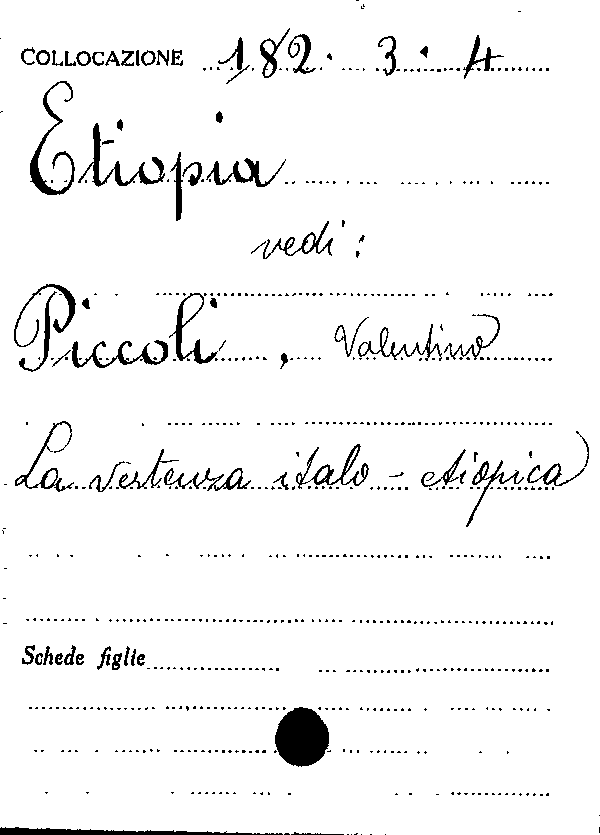 COLLOCAZIONE 182. 3. 4
Etiopia
vedi:
Piccoli, Valentino
La vertenza italo-etiopica
Schede figlie